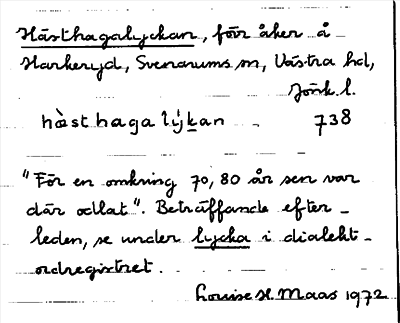 Hästhagalyckan, förr åker å
Harkeryd, Svenarums sn, Västra hd,
Jönk. l.
hàsthagalýkan 738
"För en omkring 70, 80 år sen var
där odlat". Beträffande efter-
leden, se under lycka i dialekt-
ordregistret.
Louise H. Maas 1972